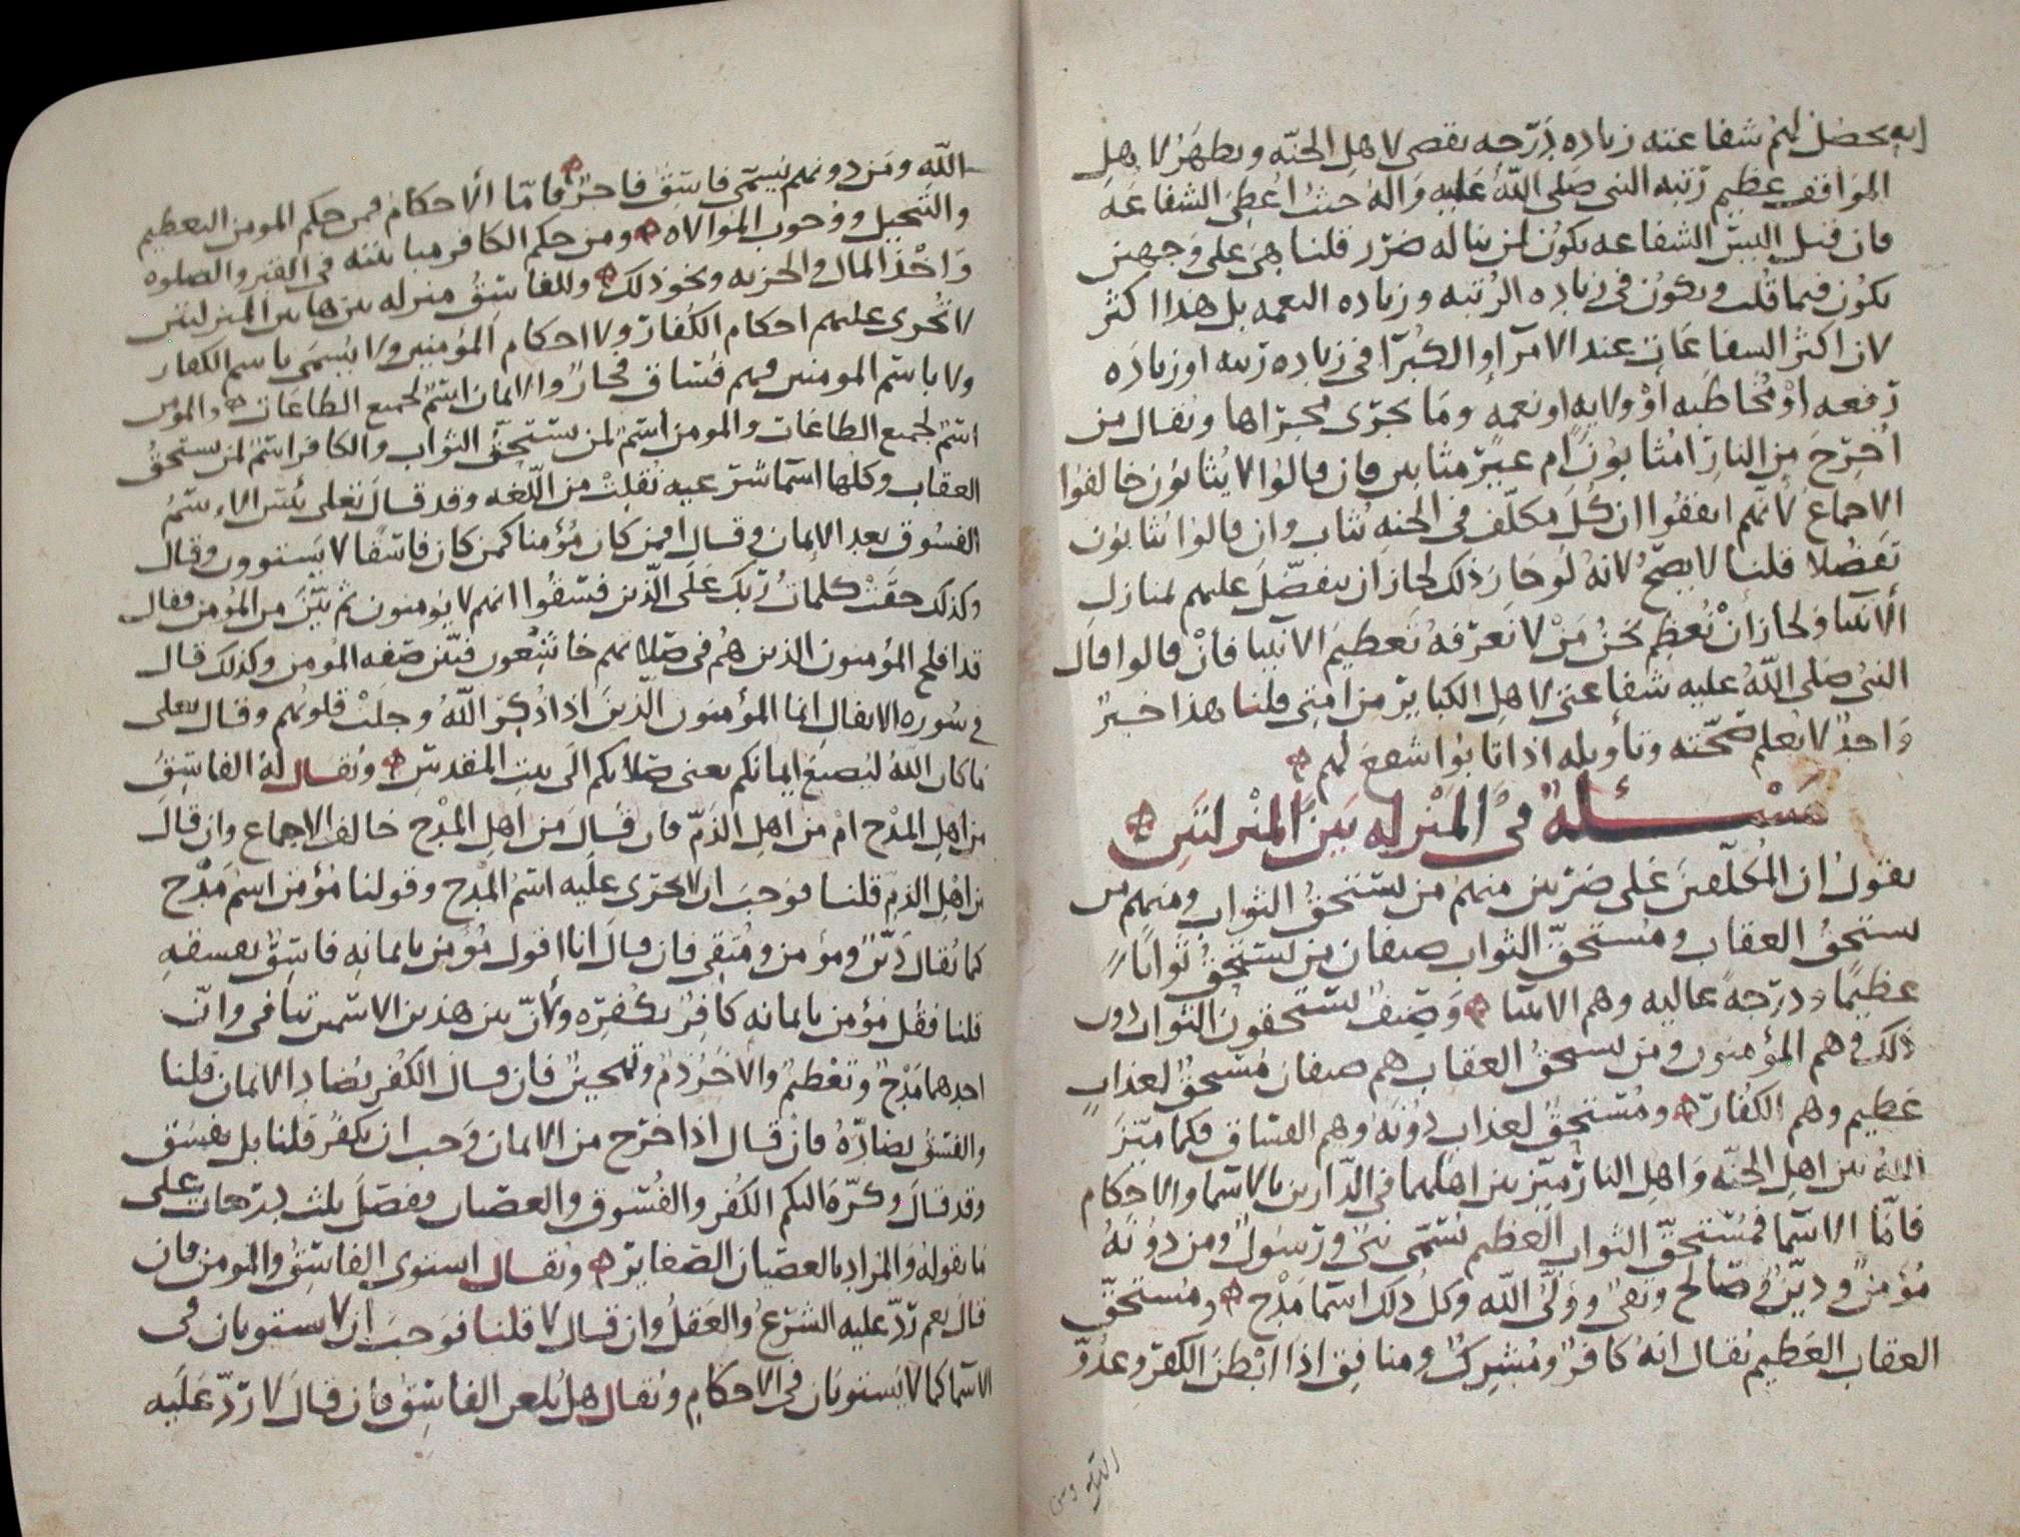 انه يحصل لهم شفاعته زياده درجه تقصى لاهل الجنه ويظهر لاهل
المواقف عظيم رتبه النبى صلى الله عليه واله حيث اعطى الشفاعه
فان قيل اليس الشفاعه يكون لمن يناله ضرر قلنا هى على وجهين
يكون فيما قلت ويكون فى زياده الرتبه وزياده النعمه بل هذا اكثر
لان اكثر الشفاعات عند الامرا والكبرا فى زياده رتبه او زياده
رفعه او مخاطبه او ولايه او نعمه وما يجرى مجراها ويقال من
اخرج من النار امثابون ام غير مثابين فان قالوا لا يثابون خالفوا
الاجماع لانهم اتفقوا ان كل مكلف فى الجنه يثاب وان قالوا يثابون
تفضلا قلنا لا يصح لانه لو جاز ذلك لجاز ان يتفضل عليهم بمنازل
الانبيا ولجاز ان نعظم نحن من لا نعرفه تعظيم الانبيا فان قالوا قال
النبى صلى الله عليه شفاعتى لاهل الكباير من امتى قلنا هذا خبر
واحد لا يعلم صحته وتأويله اذا تابوا شفع لهم
مسئلة فى المنزله بين المنزلتين
يقول ان المكلفين على ضربين منهم من يستحق الثواب ومنهم من
يستحق العقاب ومستحق الثواب صنفان من يستحق ثوابا
عظيما ودرجة عاليه وهم الانبيا وصنف يستحقون الثواب دون
ذلك وهم المؤمنون ومن يستحق العقاب هم صنفان مستحق لعذاب
عظيم وهم الكفار ومستحق لعذاب دونه وهم الفساق فكما ميز
الله بين اهل الجنه واهل النار ميز بين اهلهما فى الدارين بالاسما والاحكام
فاما الاسما فمستحق الثواب العظيم يسمى نبى ورسول ومن دونه
مؤمن ودين وصالح وتقى وولى الله وكل ذلك اسما مدح ومستحق
العقاب العظيم يقال انه كافر ومشرك ومنافق اذا ابطن الكفر وعدو
الله ومن دونهم يسمى فاسق فاجر فاما الاحكام فمن حكم المومن التعظيم
والتبجيل ووجوب الموالاه ومن حكم الكافر مباينته فى القبر والصلوه
واخذ المال والجزيه ونحو ذلك وللفاسق منزله بين هاتين المنزلتين
لا تجرى عليهم احكام الكفار ولا احكام المؤمنين ولا يسمى باسم الكفار
ولا باسم المومنين فهم فساق فجار والايمان اسم لجميع الطاعات والمومن
اسم لجميع الطاعات والمومن اسم لمن يستحق الثواب والكافر اسم لمن يستحق
العقاب وكلها اسما شرعيه نقلت من اللغه وقد قال تعلى بئس الاسم
الفسوق بعد الايمان وقال افمن كان مؤمنا كمن كان فاسقا لا يستوون وقال
وكذلك حقت كلمات ربك على الذين فسقوا انهم لا يؤمنون ثم بين من المؤمن فقال
قد افلح المؤمنون الذين هم فى صلاتهم خاشعون فبين صفه المؤمن وكذلك قال
فى سوره الانفال انما المؤمنون الذين اذا ذكر الله وجلت قلوبهم وقال تعلى
ما كان الله ليضيع ايمانكم يعنى صلاتكم الى بيت المقدس ويقال له الفاسق
من اهل المدح ام من اهل الذم فان قال من اهل المدح خالف الاجماع وان قال
من اهل الذم قلنا فوجب ان لا يجرى عليه اسم المدح وقولنا مؤمن اسم مدح
كما يقال دين ومؤمن ومتقى فان قال انا اقول مؤمن بايمانه فاسق بفسقه
قلنا فقل مؤمن بايمانه كافر بكفره ولأن بين هذين الاسمين تنافى وان
احدهما مدح وتعظيم والاخر ذم وتهجين فان قال الكفر يضاد الايمان قلنا
والفسق يضاده فان قال اذا خرج من الايمان وجب ان يكفر قلنا بل يفسق
وقد قال وكره اليكم الكفر والفسوق والعصيان ففصل بثلث درجات على
ما نقوله والمراد بالعصيان الصغاير ويقال استوى الفاسق والمومن فان
قال نعم رد عليه الشرع والعقل وان قال لا قلنا فوجب ان لا يستويان فى
الاسما كما لا يستويان فى الاحكام ويقال هل يلعن الفاسق فان قال لا رد عليه